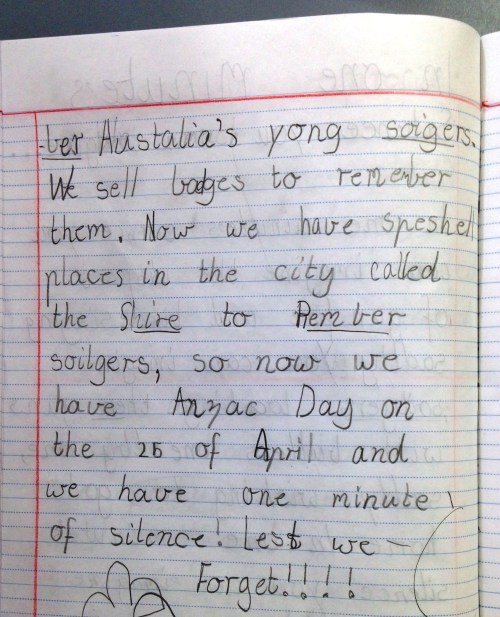 -ber Austalia's yong soigers.
We sell badges to remember
them. Now we have speshell
places in the city called
the Shire to Rember
soilgers, so now we
have Anzac Day on
the 25 of April and
we have one minute
of silence! Lest we —
Forget!!!!